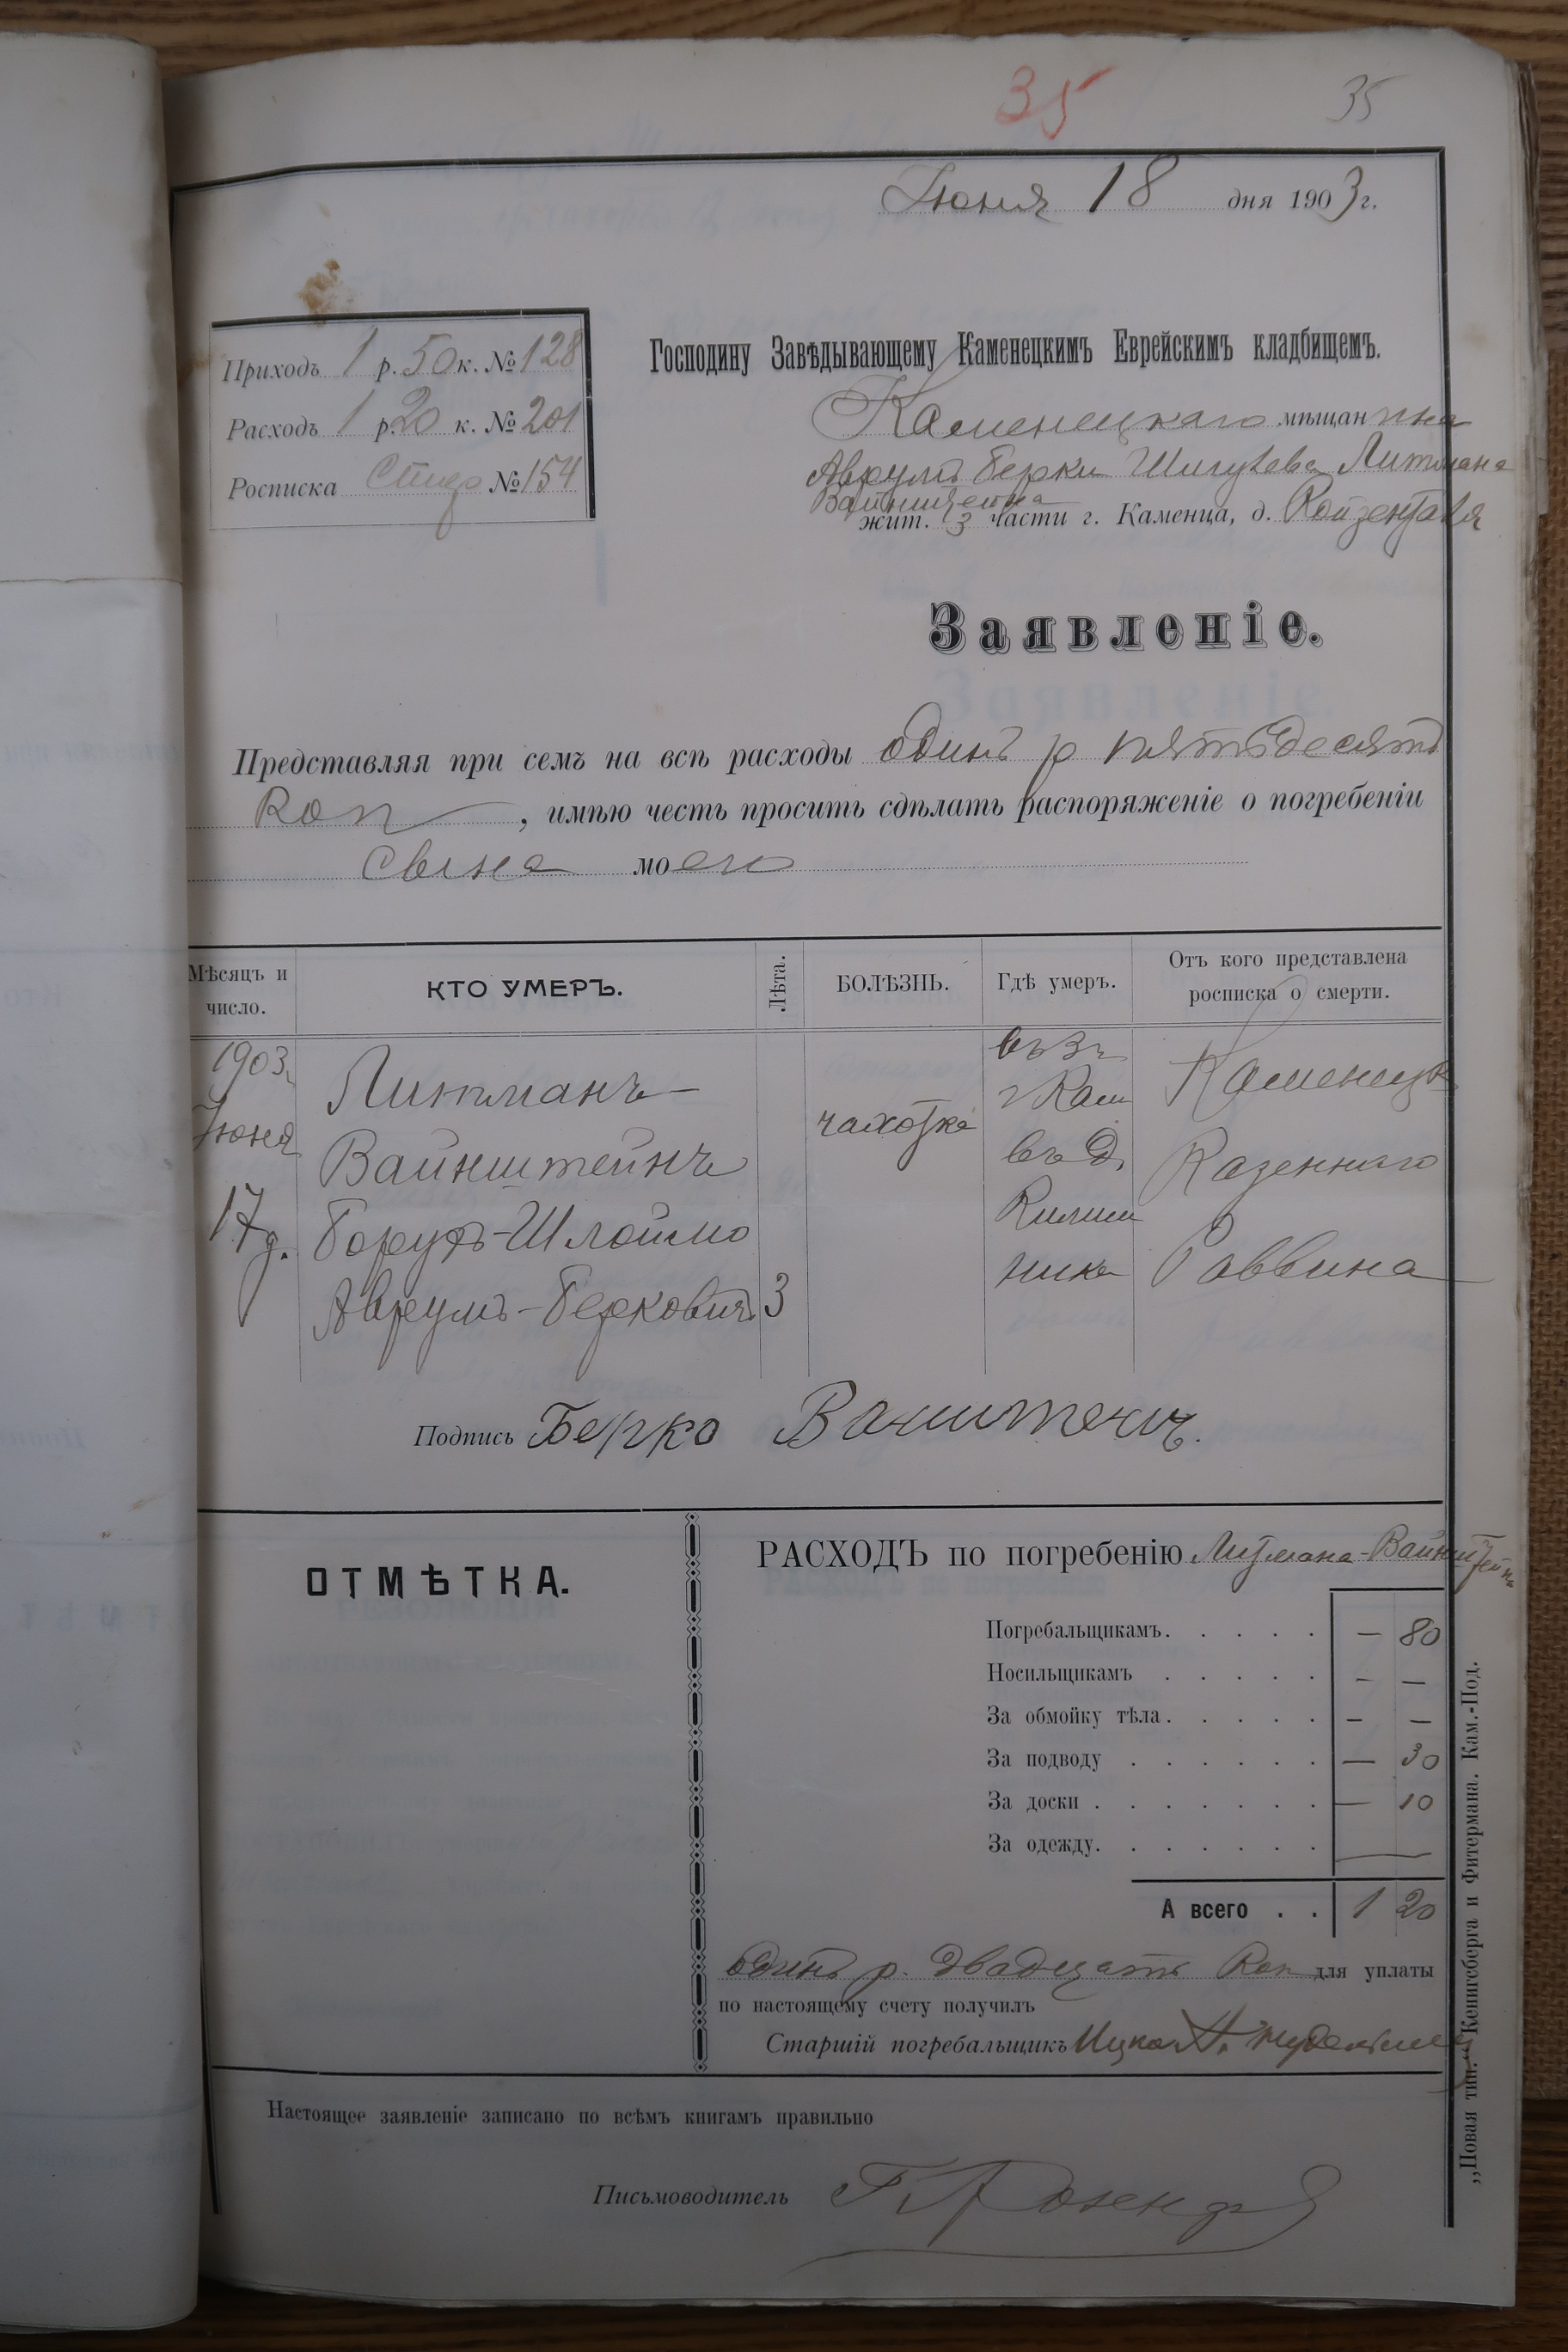 35 35
Іюня 18 дня 1903 г.
Приходъ 1 р. 50 к. № 128
Расходъ 1 р. 20 к. № 201
Росписка № 154
Господину Завѣдывающему Каменецкимъ Еврейскимъ кладбищемъ.
Каменецкаго мѣщанина
Аврумъ Берки Литмана
Вайнштейна
жит. 3 части г. Каменца, д. Ройзенталя
Заявленіе.
Представляя при семъ на всѣ расходы одинъ р пятьдесятъ
коп, имѣю честь просить сдѣлать распоряженіе о погребеніи
сына моего
Мѣсяцъ и число. КТО УМЕРЪ. Лѣта. БОЛѢЗНЬ. Гдѣ умеръ. Отъ кого представлена росписка о смерти.
1903 г. Литманъ- въ 3 ч Каменецк
Іюня Вайнштейнъ чахотка г Кам Казеннаго
17 д. Борухъ-Шлоймо въ д. Раввина
Аврумъ-Берковичъ 3
Подпись Берко Ваништенъ.
ОТМѢТКА.
РАСХОДЪ по погребенію Литмана-Вайнштейна
Погребальщикамъ. . . . . — 80
Носильщикамъ . . . . . – –
За обмойку тѣла. . . . . – –
За подводу . . . . . . — 30
За доски . . . . . . . — 10
За одежду. . . . . . —
А всего . . 1 20
Одинъ р. двадцать коп для уплаты
по настоящему счету получилъ
Старшій погребальщикъ Ицко
Настоящее заявленіе записано по всѣмъ книгамъ правильно
Письмоводитель
„Новая тип.“ Кенигсберга и Фитермана. Кам.-Под.